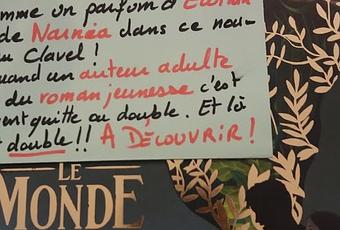 mme un parfum d'
de Narnéa dans ce nou-
u Clavel !
uand un auteur adulte
du roman jeunesse c'est
ent quitte ou double. Et là
double !! A DÉCOUVRIR !
LE
MONDE